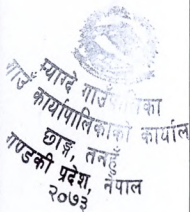 म्याग्दे गाउँपालिका
गाउँ कार्यापालिकाको कार्याल
छाङ्ग, तनहुँ
गण्डकी प्रदेश, नेपाल
२०७३